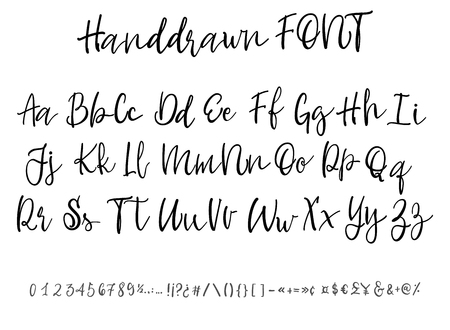 Handdrawn FONT
Aa Bb Cc Dd Ee Ff Gg Hh Ii
Jj Kk Ll Mm Nn Oo Pp Qq
Rr Ss Tt Uu Vv Ww Xx Yy Zz
0 1 2 3 4 5 6 7 8 9 ½ . , : ; … ! ¡ ? ¿ # / \ ( ) { } [ ] - « + = » ¢ ¤ $ € £ ¥ & & + @ %